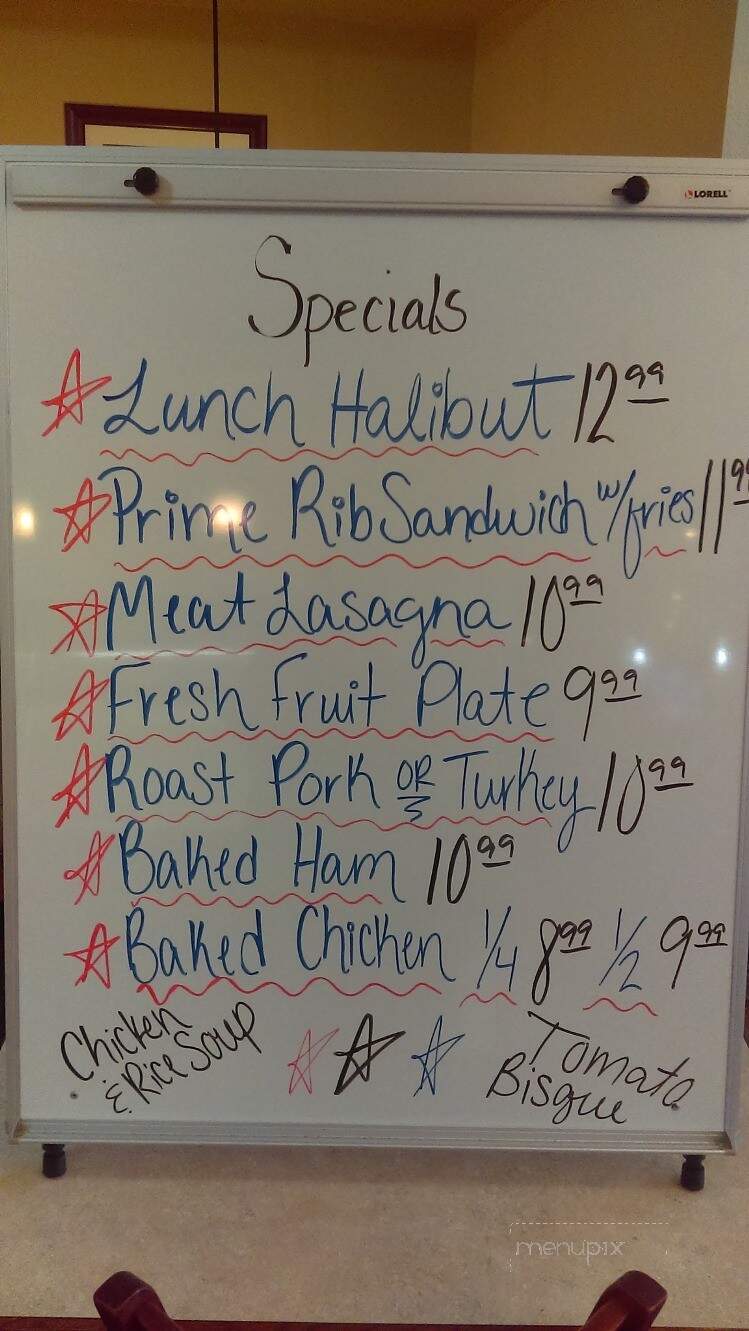 LORELL
Specials
Lunch Halibut 12.99
Prime Rib Sandwich w/fries 11.99
Meat Lasagna 10.99
Fresh Fruit Plate 9.99
Roast Pork OR Turkey 10.99
Baked Ham 10.99
Baked Chicken 1/4 8.99 1/2 9.99
Chicken
& Rice Soup
Tomato
Bisque
menupix